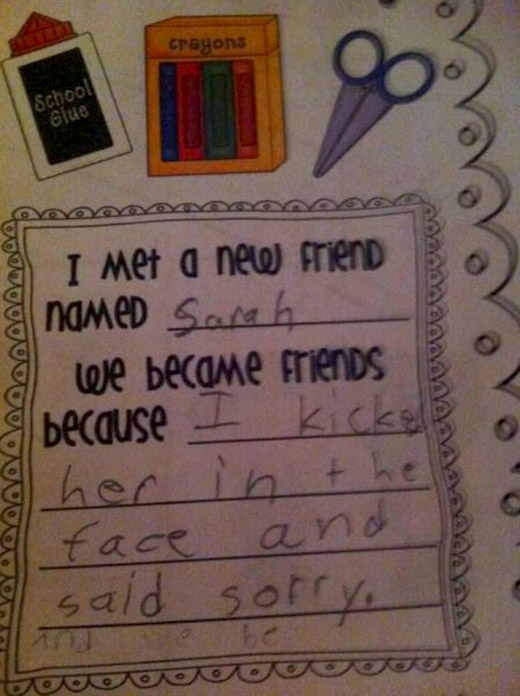 School
Glue
crayons
I Met a new Friend
named Sarah
We became Friends
because I kicked
her in the
face and
said sorry.
And we be